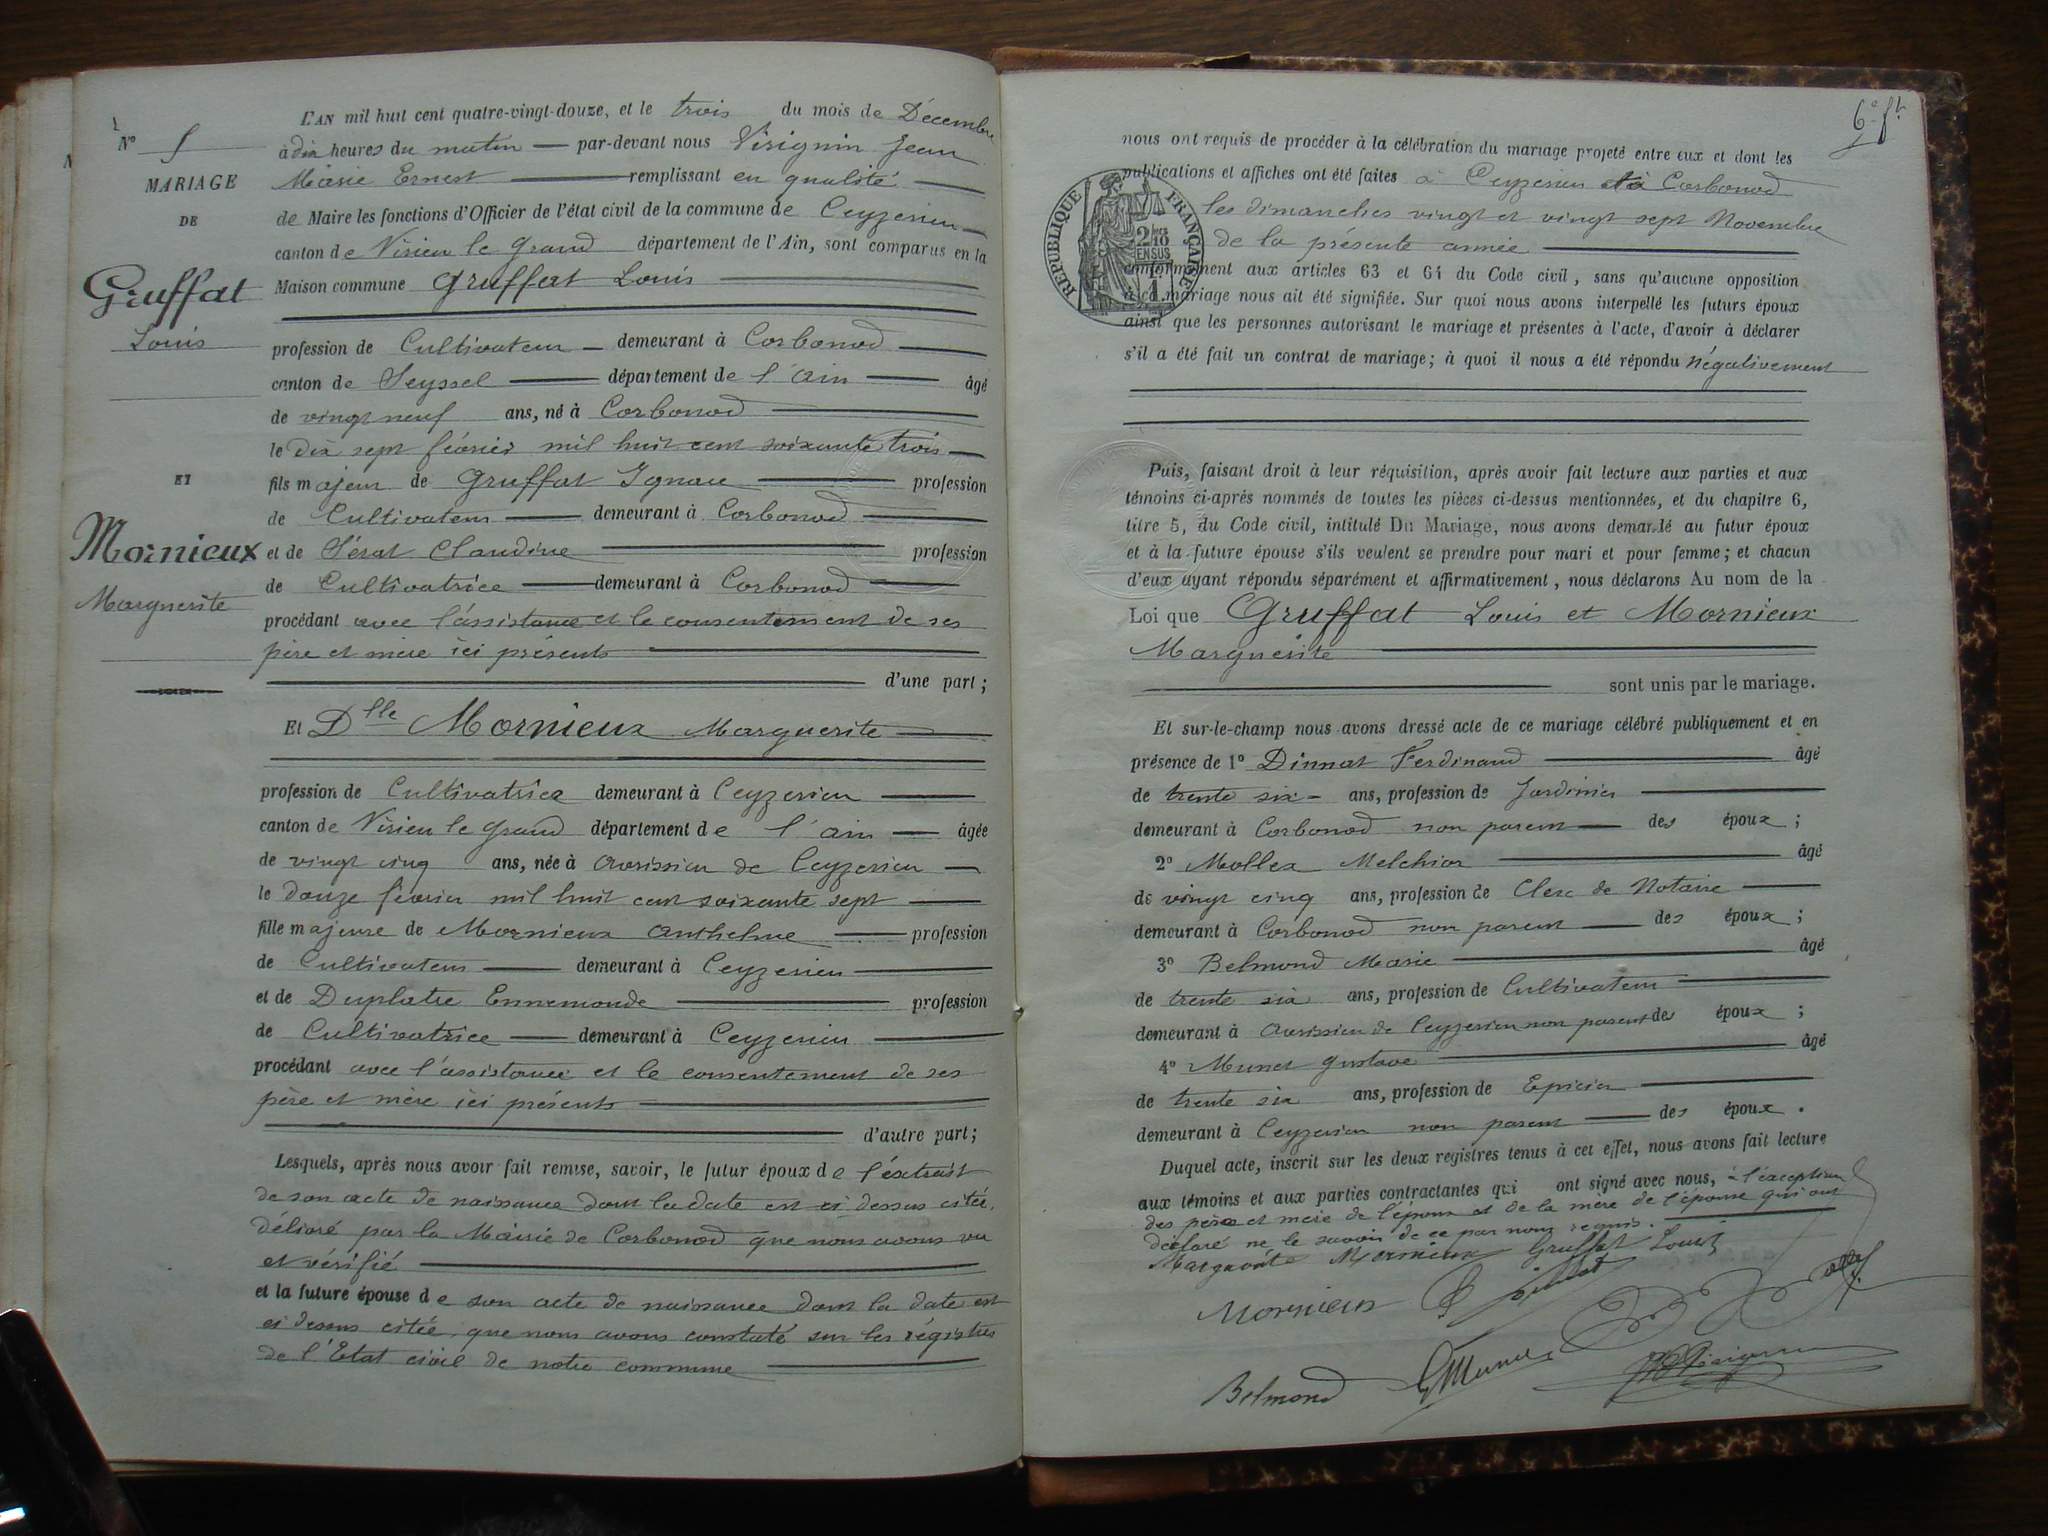 L'AN mil huit cent quatre-vingt-douze, et le trois du mois de Décembre
à dix heures du matin par-devant nous Virignin Jean
Marie Ernest remplissant en qualité
de Maire les fonctions d'Officier de l'état civil de la commune de Ceyzerieu
canton de Virieu le Grand département de l'Ain, sont comparus en la
Maison commune Gruffat Louis
profession de Cultivateur demeurant à Corbonod
canton de Seyssel département de l'Ain âgé
de vingt neuf ans, né à Corbonod
le dix sept février mil huit cent soixante trois
fils majeur de Gruffat Ignace profession
de Cultivateur demeurant à Corbonod
et de Sérat Claudine profession
de Cultivatrice demeurant à Corbonod
procédant avec l'assistance et le consentement de ses
père et mère ici présents
d'une part ;
Et Dlle Mornieux Marguerite
profession de Cultivatrice demeurant à Ceyzerieu
canton de Virieu le Grand département de l'Ain âgée
de vingt cinq ans, née à Avrissieu de Ceyzerieu
le douze février mil huit cent soixante sept
fille majeure de Mornieux Anthelme profession
de Cultivateur demeurant à Ceyzerieu
et de Duplatre Ennemonde profession
de Cultivatrice demeurant à Ceyzerieu
procédant avec l'assistance et le consentement de ses
père et mère ici présents
d'autre part ;
Lesquels, après nous avoir fait remise, savoir, le futur époux de l'extrait
de son acte de naissance dont la date est ci dessus citée,
délivré par la Mairie de Corbonod que nous avons vu
et vérifié
et la future épouse de son acte de naissance dont la date est
ci dessus citée, que nous avons constaté sur les régistres
de l'Etat civil de notre commune
N° 5
MARIAGE
DE
Gruffat
Louis
ET
Mornieux
Marguerite
6e ft
nous ont requis de procéder à la célébration du mariage projeté entre eux et dont les
publications et affiches ont été faites à Ceyzerieu et à Corbonod
les dimanches vingt et vingt sept Novembre
de la présente année
conformément aux articles 63 et 64 du Code civil, sans qu'aucune opposition
à ce mariage nous ait été signifiée. Sur quoi nous avons interpellé les futurs époux
ainsi que les personnes autorisant le mariage et présentes à l'acte, d'avoir à déclarer
s'il a été fait un contrat de mariage ; à quoi il nous a été répondu négativement
RÉPUBLIQUE FRANÇAISE
2/10
EN SUS
Puis, faisant droit à leur réquisition, après avoir fait lecture aux parties et aux
témoins ci-après nommés de toutes les pièces ci-dessus mentionnées, et du chapitre 6,
titre 5, du Code civil, intitulé Du Mariage, nous avons demandé au futur époux
et à la future épouse s'ils veulent se prendre pour mari et pour femme ; et chacun
d'eux ayant répondu séparément et affirmativement, nous déclarons Au nom de la
Loi que Gruffat Louis et Mornieux
Marguerite
sont unis par le mariage.
Et sur-le-champ nous avons dressé acte de ce mariage célébré publiquement et en
présence de 1° Dinnat Ferdinand âgé
de trente six ans, profession de Jardinier
demeurant à Corbonod non parent des époux ;
2° Mollex Melchior âgé
de vingt cinq ans, profession de Clerc de Notaire
demeurant à Corbonod non parent des époux ;
3° Belmond Marie âgé
de trente six ans, profession de Cultivateur
demeurant à Avrissieu de Ceyzerieu non parent des époux ;
4° Munet Gustave âgé
de trente six ans, profession de Epicier
demeurant à Ceyzerieu non parent des époux .
Duquel acte, inscrit sur les deux registres tenus à cet effet, nous avons fait lecture
aux témoins et aux parties contractantes qui ont signé avec nous, à l'exception
des père et mère de l'époux et de la mère de l'épouse qui ont
déclaré ne le savoir de ce par nous requis.
Marguerite Mornieux Gruffat Louis
Mornieux
Belmond GMunet Virignin